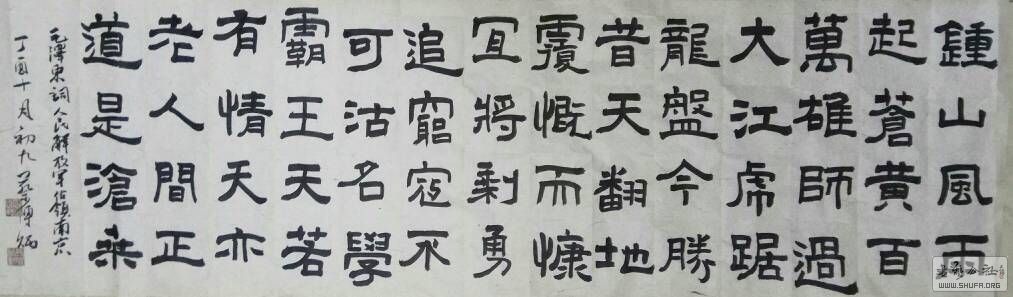 鍾山風雨
起蒼黃百
萬雄師過
大江虎踞
龍盤今勝
昔天翻地
覆慨而慷
宜將剩勇
追窮寇不
可沽名學
霸王天若
有情天亦
老人間正
道是滄桒
毛澤東詞人民解放軍佔領南京
丁酉十月初九
WWW.SHUFA.ORG